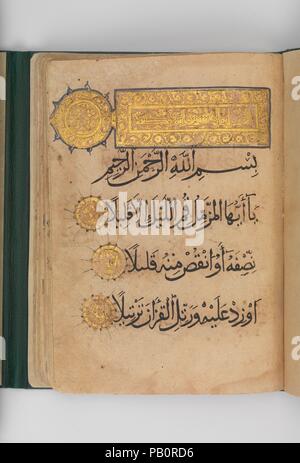 بسم الله الرحمن الرحيم
يا أيها المزمل قم الليل إلا قليلا
نصفه أو انقص منه قليلا
او زد عليه ورتل القرآن ترتيلا
alamy
PB0RD6